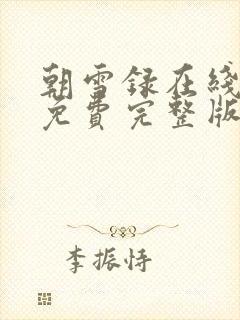 朝雪录在线
免费完整版
李振恃